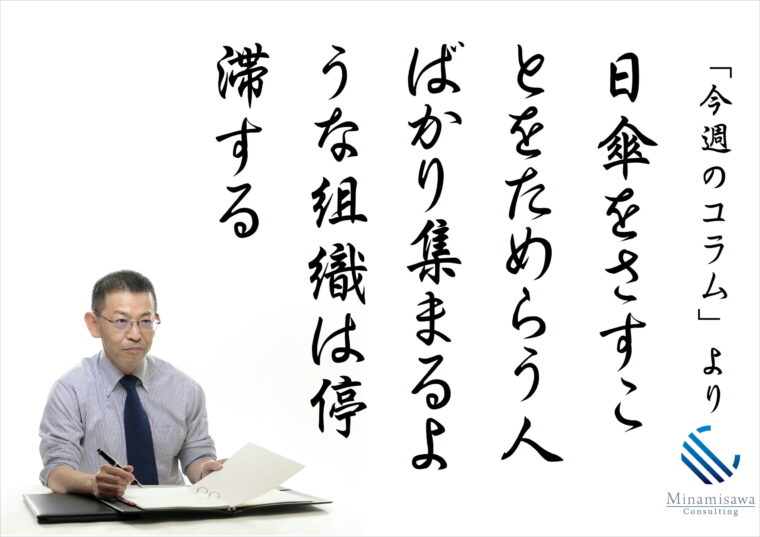 「今週のコラム」より
日傘をさすこ
とをためらう人
ばかり集まるよ
うな組織は停
滞する
Minamisawa
Consulting